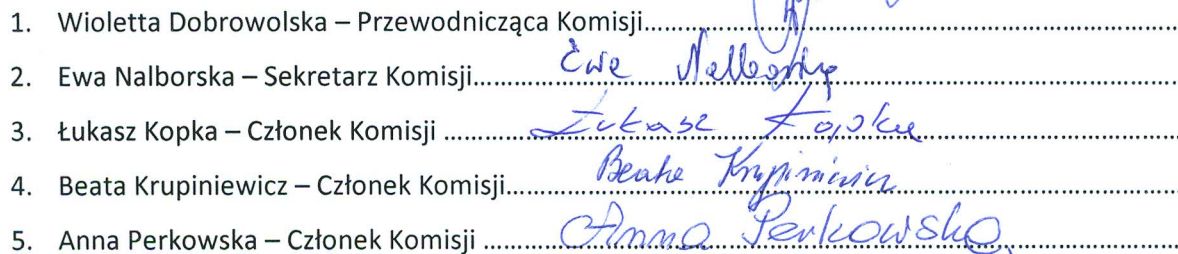 1. Wioletta Dobrowolska – Przewodnicząca Komisji
2. Ewa Nalborska – Sekretarz Komisji Ewa Nalborska
3. Łukasz Kopka – Członek Komisji Łukasz Kopka
4. Beata Krupiniewicz – Członek Komisji Beata Krupiniewicz
5. Anna Perkowska – Członek Komisji Anna Perkowska